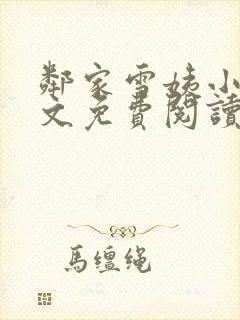 鄰家雪姨小
文免費閱讀
馬缰绳